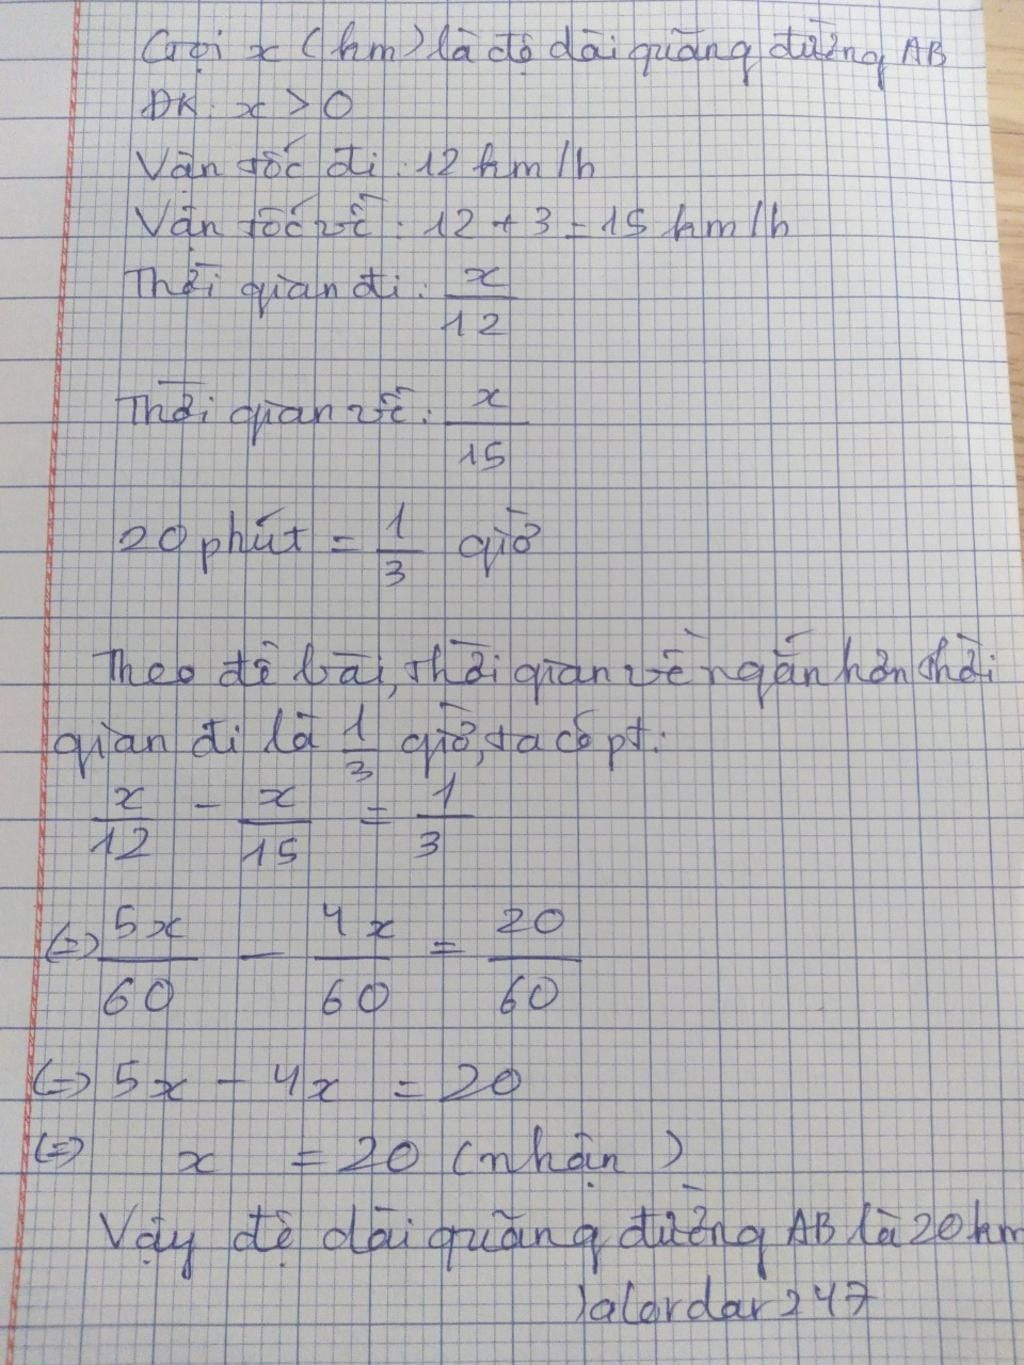 Gọi x (km) là độ dài quãng đường AB
ĐK: x > 0
Vận tốc đi: 12 km/h
Vận tốc về: 12 + 3 = 15 km/h
Thời gian đi: x/12
Thời gian về: x/15
20 phút = 1/3 giờ
Theo đề bài, thời gian về ngắn hơn thời
gian đi là 1/3 giờ, ta có pt:
x/12 - x/15 = 1/3
(=) 5x/60 - 4x/60 = 20/60
(=) 5x - 4x = 20
(=) x = 20 (nhận)
Vậy độ dài quãng đường AB là 20 km